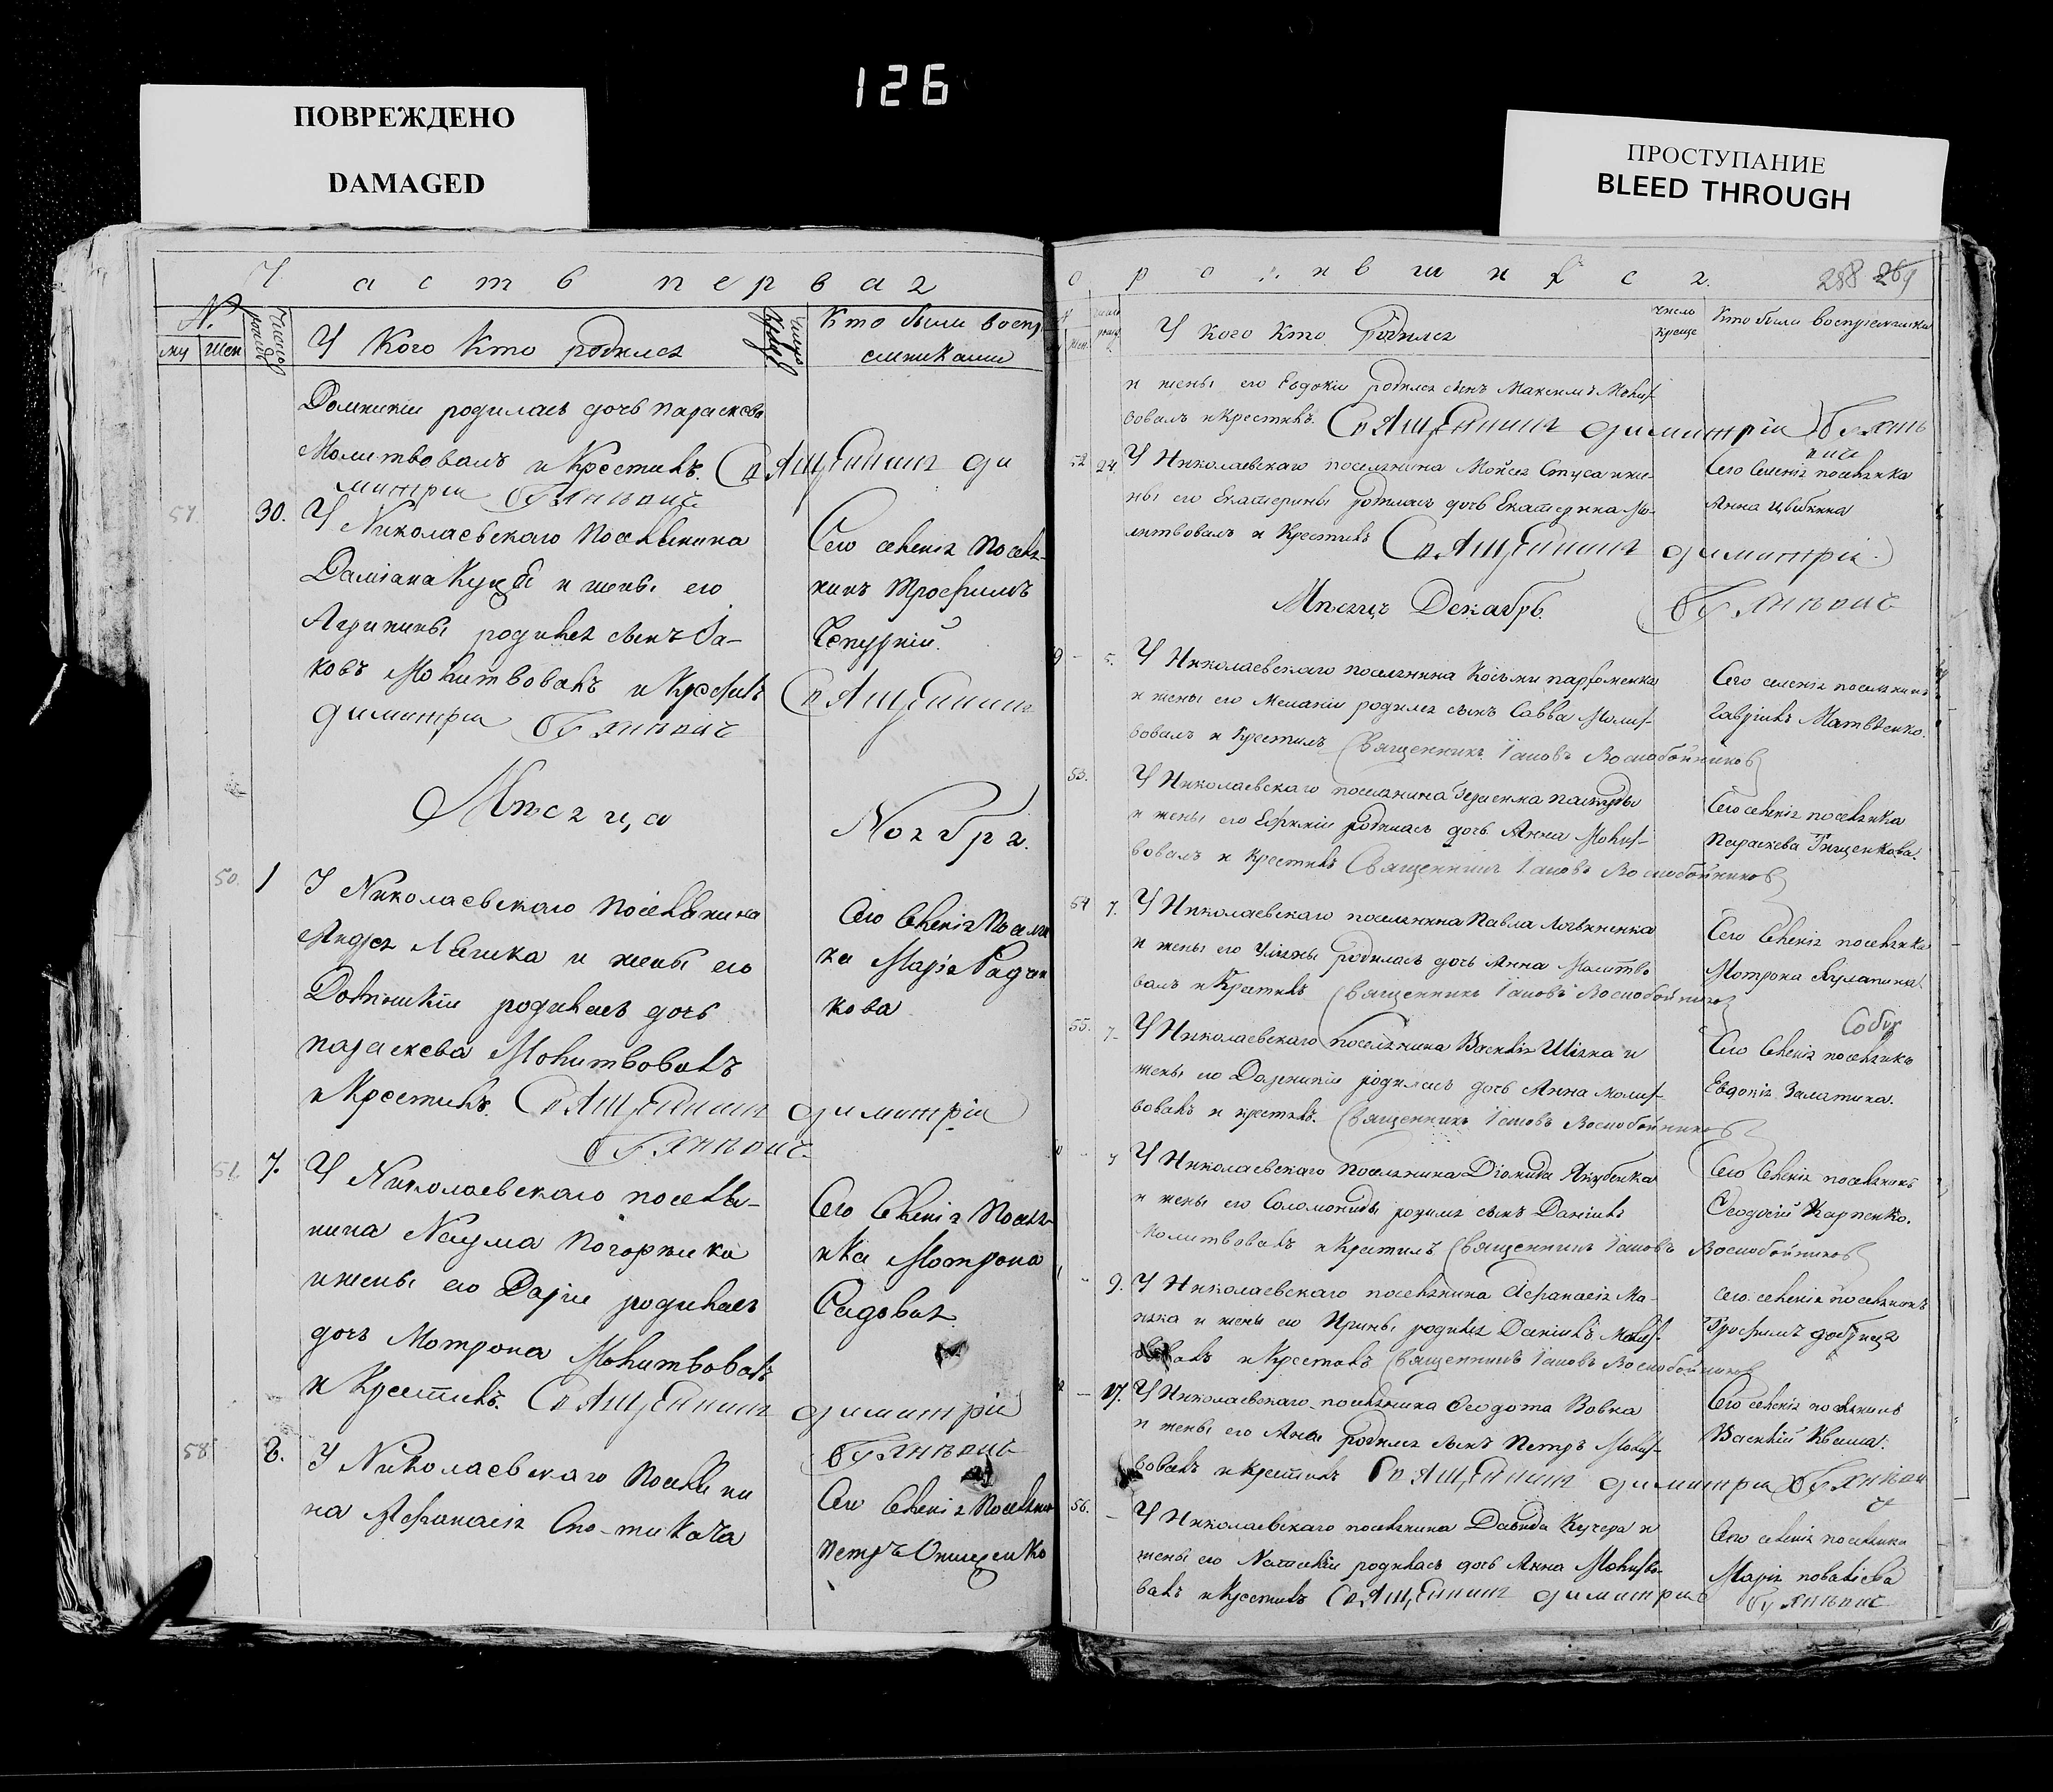 126
ПОВРЕЖДЕНО
DAMAGED
ПРОСТУПАНИЕ
BLEED THROUGH
Часть первая
N.
му жен
У Кого Кто родился
Кто были воспр
емниками
Домникіи родилась дочь параскева
Молитвовалъ и Крестилъ. Священникъ ди
митрій
57. 30. У Николаевскаго Поселянина
Даміана КуцБ и жены его
Агрипины родился сынъ Іа-
ковъ Молитвовалъ и Крестилъ Священникъ
димитрій
Сего селенія Поселя-
нинъ Трофимъ
Чепурній.
Мѣсяца Ноября.
50. 1 У Николаевскаго Поселянина
Андрея и жены его
Домникіи родилась дочь
параскева Молитвовалъ
и Крестилъ. Священникъ димитрій
Сего Селенія Поселя
ка Марія Радчен
кова
51. 7. У Николаевскаго поселя-
нина Наума Погоржика
и жены его Даріи родилась
дочь Мотрона Молитвовалъ
и Крестилъ. Священникъ димитрій
Сего Селенія Поселя
нка Мотрона
Садовая
58 8. У Николаевскаго Поселяни
на Афанасія
Сего Селенія Поселянин
петръ Онищенко
о родившихся.
288 269
У кого кто родился
число
креще
Кто были воспріемники
и жены его Евдокіи родился сынъ Максимъ Молит-
вовалъ и Крестилъ. Священникъ димитрій
52 24. У Николаевскаго поселянина Мойсея Стуса и же-
ны его Екатерины родилась дочь Екатерина Мо-
литвовалъ и Крестилъ Священникъ димитрій
Сего Селенія поселянка
Анна Цыбкина
Мѣсяцъ Декабрь.
5. У Николаевскаго поселянина Косьми парфоменка
и жены его Меланіи родился сынъ Савва Молит-
вовалъ и Крестилъ Священникъ Іаковъ Воскобойниковъ
Сего селенія поселянинъ
Гавріилъ Матвѣенко.
53. У Николаевскаго поселянина
и жены его Ефиміи родилась дочь Анна Молит-
вовалъ и крестилъ Священникъ Іаковъ Воскобойниковъ
Сего селенія поселянка
Параскева Тищенкова.
54 7. У Николаевскаго поселянина Павла Логвиненка
и жены его Уліяны родилась дочь Анна Молитво
валъ и Крестилъ Священникъ Іаковъ Воскобойников
Сего Селенія поселянка
Мотрона
55. 7. У Николаевскаго поселянина Василія Шіяна и
жены его Домникіи родилась дочь Анна молит-
вовалъ и крестилъ. Священникъ Іаковъ Воскобойниковъ
Сего Селенія поселянка
Евдокія Залатина.
7 У Николаевскаго поселянина Діомида Якубенка
и жены его Соломониды родился сынъ Даніилъ
Молитвовалъ и Крестилъ Священникъ Іаковъ Воскобойниковъ
Сего Селенія поселянинъ
Феодосій Карпенко.
9. У Николаевскаго поселянина Афанасія Ма-
нька и жены его Ирины родился Даніилъ Молит-
вовалъ и Крестилъ Священникъ Іаковъ Воскобойников
сего селенія поселянинъ
Трофимъ
17. У Николаевскаго поселянина Феодота Вовка
и жены его Анны родился сынъ Петръ Молит-
вовалъ и Крестилъ Священникъ димитрій
Сего селенія поселянинъ
Василій Кваша.
56. У Николаевскаго поселянина Давида Кучера и
жены его Наталіи родилась дочь Анна Молитво-
валъ и Крестилъ Священникъ димитрій
Сего селенія поселянка
Марія